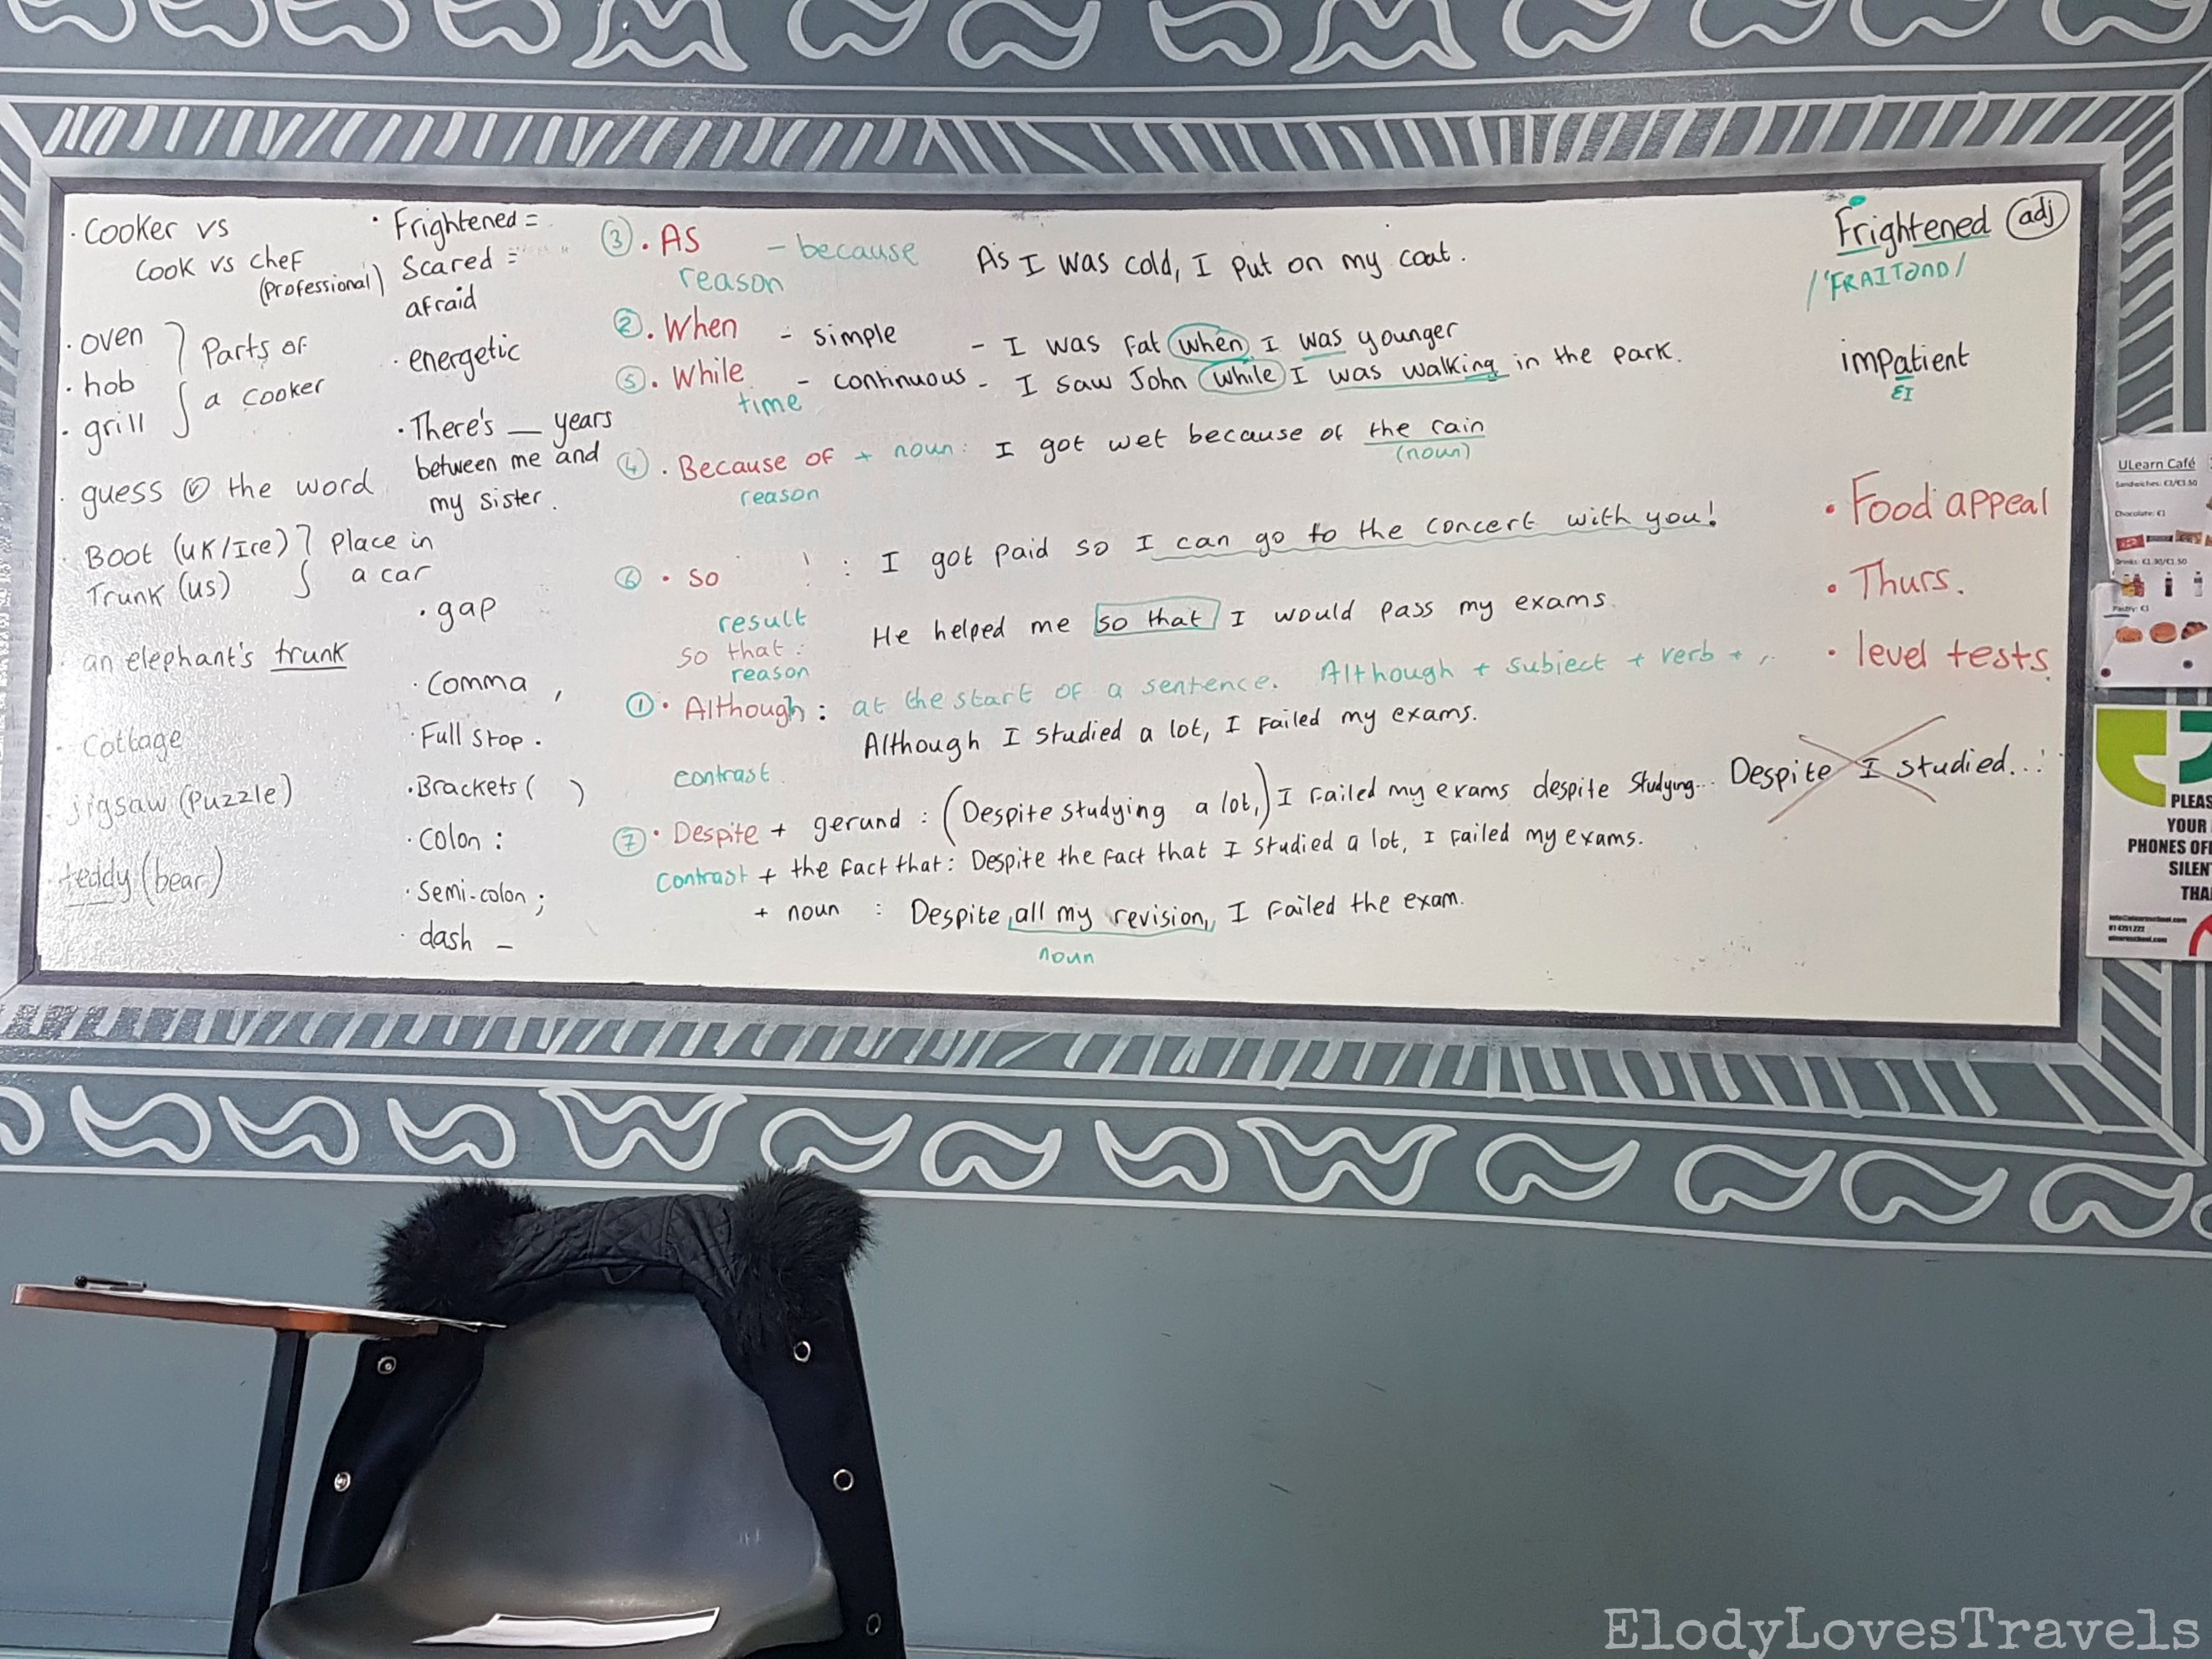 · Cooker vs
Cook vs chef
(Professional)
· oven
· hob
· grill
Parts of
a cooker
· guess (v) the word
· Boot (UK/Ire)
Trunk (US)
Place in
a car
· an elephant's trunk
· Cottage
· jigsaw (puzzle)
· teddy (bear)
· Frightened =
Scared =
afraid
· energetic
· There's __ years
between me and
my sister.
· gap
· Comma ,
· Full stop .
· Brackets ( )
· Colon :
· Semi-colon ;
· dash –
③ · As - because As I was cold, I put on my coat.
reason
② · When - simple - I was fat when I was younger
⑤ · While - continuous - I saw John while I was walking in the park.
time
④ · Because of + noun: I got wet because of the rain
(noun)
reason
⑥ · so : I got paid so I can go to the concert with you!
result
He helped me so that I would pass my exams.
so that :
reason
① · Although : at the start of a sentence. Although + subject + verb + ,.
Although I studied a lot, I failed my exams.
contrast
⑦ · Despite + gerund : (Despite studying a lot,) I failed my exams despite studying... Despite I studied...
contrast + the fact that : Despite the fact that I studied a lot, I failed my exams.
+ noun : Despite all my revision, I failed the exam.
noun
Frightened (adj)
/'FRAITəND/
impatient
ɛI
· Food appeal
· Thurs.
· level tests
ULearn Café
Sandwiches: €2/€3.50
Chocolate: €1
Drinks: €1.30/€1.50
Pastry: €1
PLEAS
YOUR
PHONES OF
SILEN
THA
ElodyLovesTravels